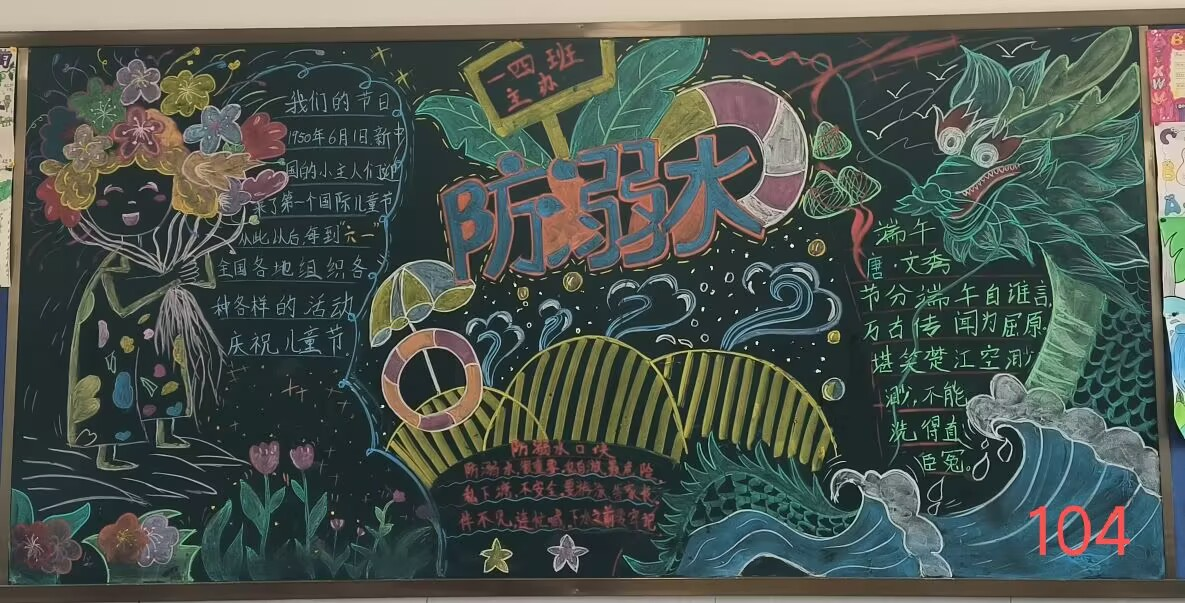 我们的节日
1950年6月1日,新中
国的小主人们迎
来了第一个国际儿童节
从此以后,每到"六一"
全国各地组织各
种各样的活动,
庆祝儿童节.
一四班
主办
防溺水
防溺水口诀
防溺水 很重要
私下 不安全
件不见, 下水之前
端午
唐·文秀
节分端午自谁言,
万古传闻为屈原.
堪笑楚江空渺
渺,不能
洗得直
臣冤。
104